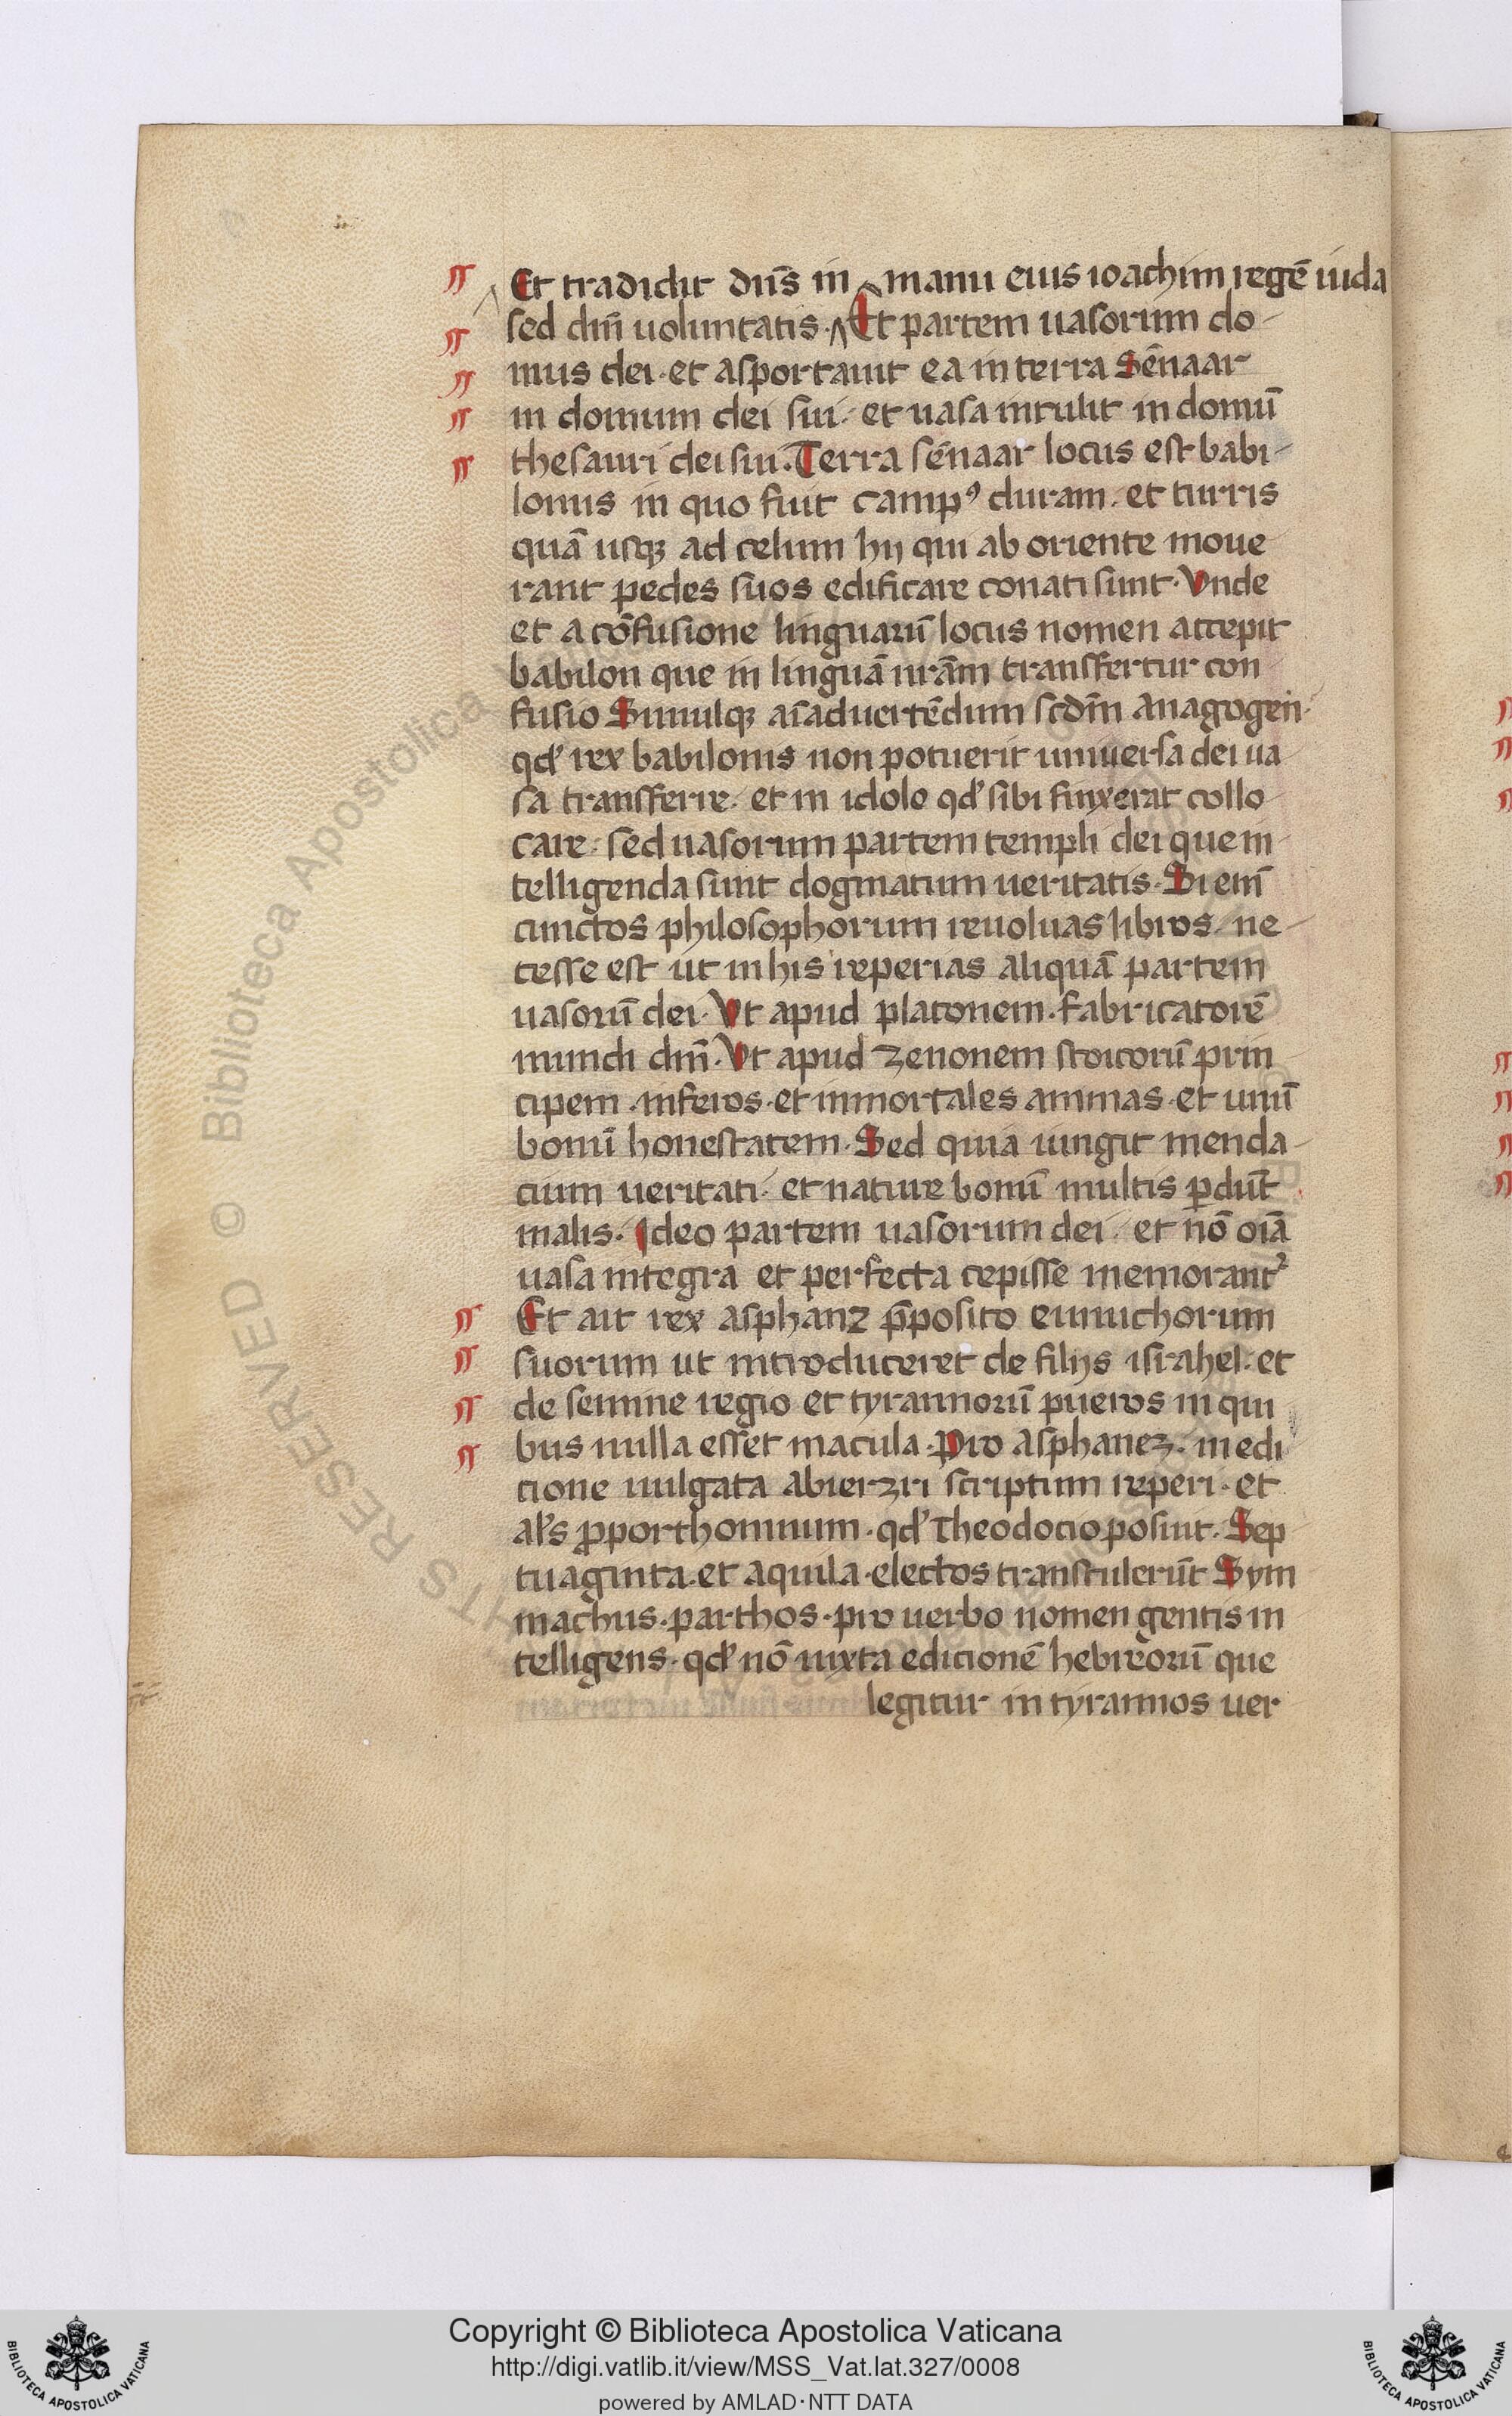 Et tradidit dn̄s in manu eius ioachim regē iuda
sed dn̄i uoluntatis. Et partem uasorum do-
mus dei. et asportauit ea in terra Sēnaar
in domum dei sui. et uasa intulit in domū
thesauri dei sui. Terra sēnaar locus est babi-
lonis in quo fuit campꝰ duram. et turris
quā usqꝫ ad celum hij qui ab oriente moue
rant pedes suos edificare conati sunt. Vnde
et a cōfusione linguarū locus nomen accepit
babilon que in linguā nrām transfertur con
fusio Simulqꝫ aīaduertēdum scdm̄ anagogen
qd' rex babilonis non potuerit uniuersa dei ua
sa transferre. et in idolo qd' sibi finxerat collo
care. sed uasorum partem templi dei que in-
telligenda sunt dogmatum ueritatis. Si enī
cunctos philosophorum reuoluas libros. ne-
cesse est ut in his reperias aliquā partem
uasorū dei. Vt apud platonem. fabricatorē
mundi dm̄. Vt apud zenonem stoicorū prin
cipem. inferos. et inmortales animas. et unū
bonū honestatem. Sed quia iungit menda-
cium ueritati. et nature bonū multis ꝑdūt
malis. Ideo partem uasorum dei. et nō oīa
uasa integra et perfecta cepisse memorant᷑
Et ait rex asphanz p̄posito eunuchorum
suorum ut introduceret de filijs israhel. et
de semine regio et tyrannorū pueros in qui
bus nulla esset macula. Pro asphanez. in edi
cione uulgata abierzri scriptum reperi. et
al's ꝓ porthommum. qd' theodocio posuit. Sep
tuaginta. et aquila. electos transtulerūt Sym
machus. parthos. pro uerbo nomen gentis in
telligens. qd' nō iuxta edicionē hebreorū que
legitur in tyrannos uer
RESERVED © Biblioteca Apostolica
Copyright © Biblioteca Apostolica Vaticana
http://digi.vatlib.it/view/MSS_Vat.lat.327/0008
powered by AMLAD·NTT DATA
BIBLIOTECA APOSTOLICA VATICANA
BIBLIOTECA APOSTOLICA VATICANA